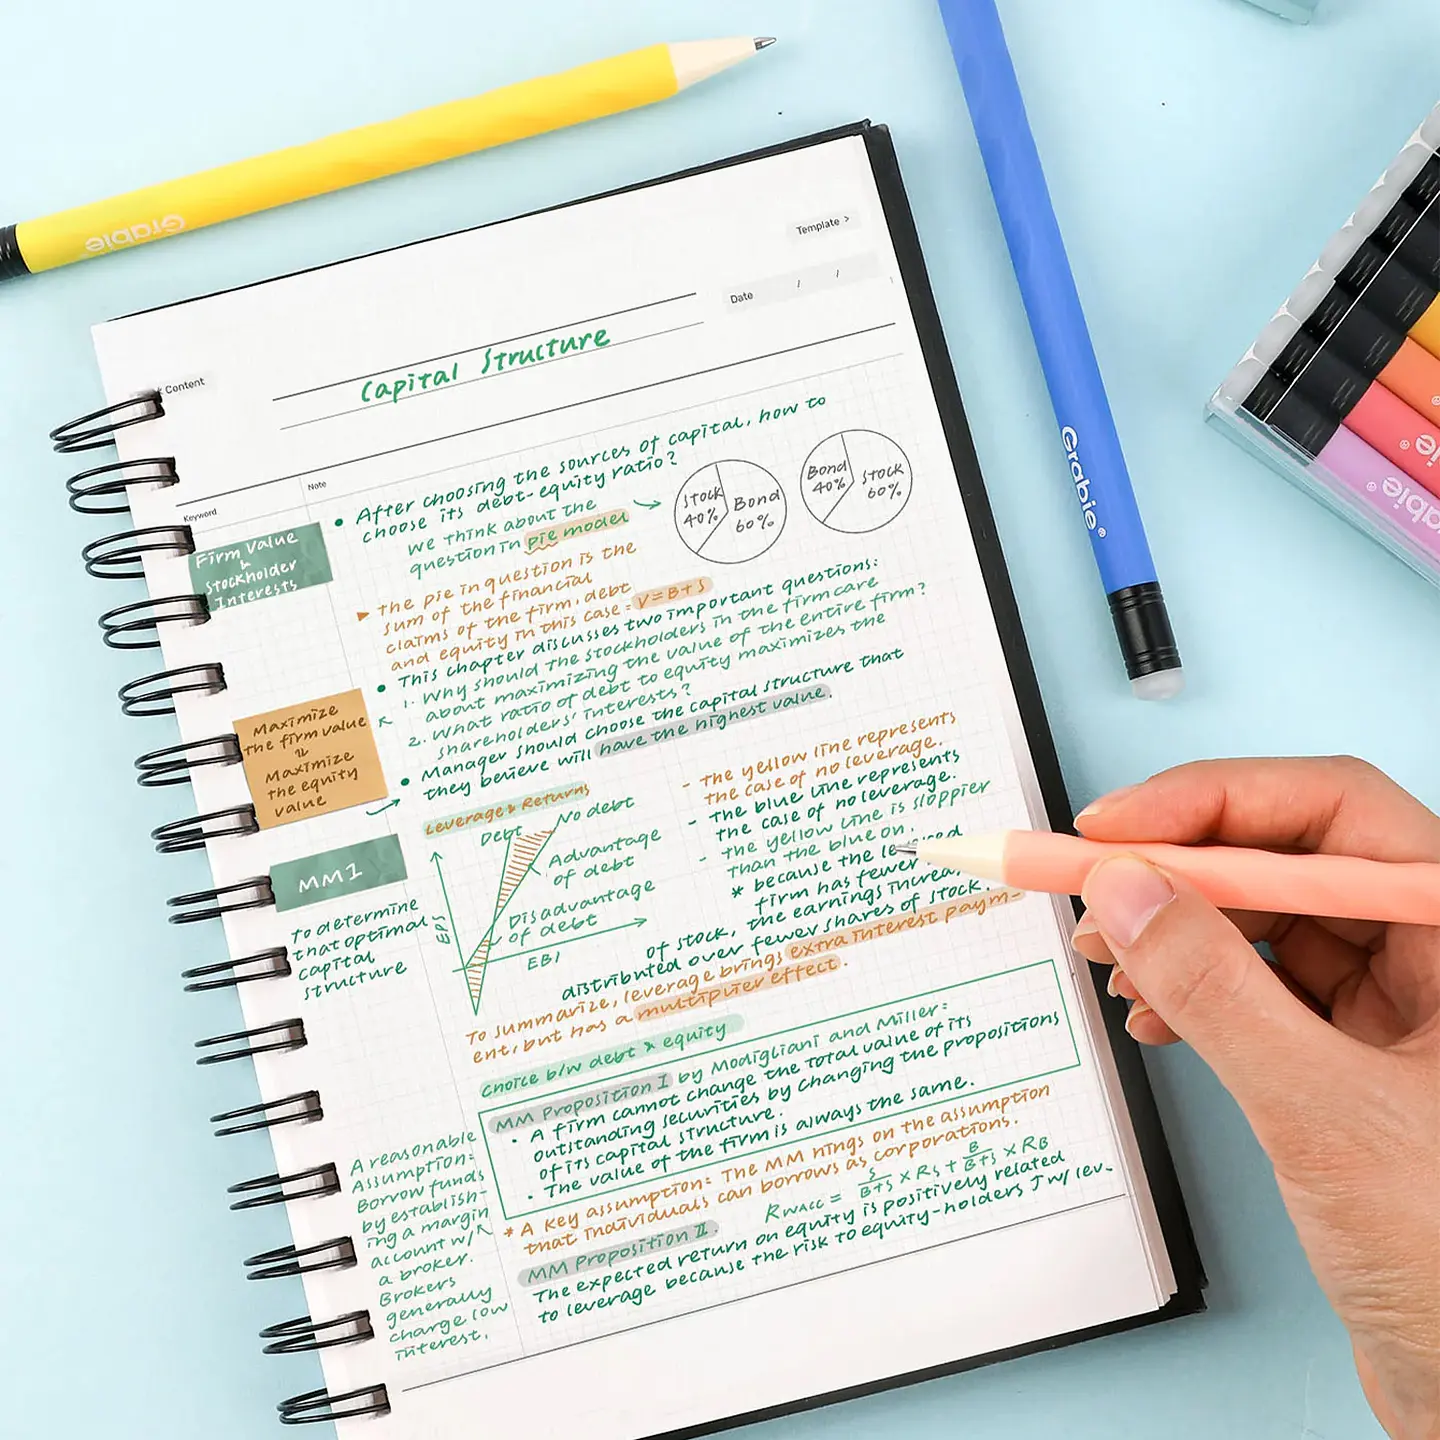 Grabie
Grabie®
Template >
Date / /
Content
Capital Structure
Keyword
Note
Firm Value
&
Stockholder
Interests
• After choosing the sources of capital, how to
choose its debt-equity ratio?
We think about the
question in pie model
Stock
40%
Bond
60%
Bond
40%
Stock
60%
The pie in question is the
sum of the financial
claims of the firm, debt
and equity in this case = V=B+S
• This chapter discusses two important questions:
1. Why should the stockholders in the firm care
about maximizing the value of the entire firm?
2. What ratio of debt to equity maximizes the
shareholders' interests?
• Manager should choose the capital structure that
they believe will have the highest value.
Maximize
the firm value
Maximize
the equity
value
Leverage & Returns
Debt
No debt
Advantage
of debt
Disadvantage
of debt
EPS
EBI
- The yellow line represents
the case of no leverage.
- The blue line represents
the case of no leverage.
- The yellow line is sloppier
than the blue on.
* because the
firm has fewer
the earnings
of stock,
distributed over fewer shares of stock.
To summarize, leverage brings extra interest paym-
ent, but has a multiplier effect.
MM1
To determine
that optimal
capital
structure
choice b/w debt & equity
MM Proposition I by Modigliani and Miller:
• A firm cannot change the total value of its
outstanding securities by changing the propositions
of its capital structure.
• The value of the firm is always the same.
* A key assumption: The MM hings on the assumption
that individuals can borrows as corporations.
RWACC = S/B+S × RS + B/B+S × RB
MM Proposition II.
The expected return on equity is positively related
to leverage because the risk to equity-holders ↑ w/ lev-
A reasonable
Assumption:
Borrow funds
by establish-
ing a margin
account w/
a broker.
Brokers
generally
charge low
interest.
Grabie®